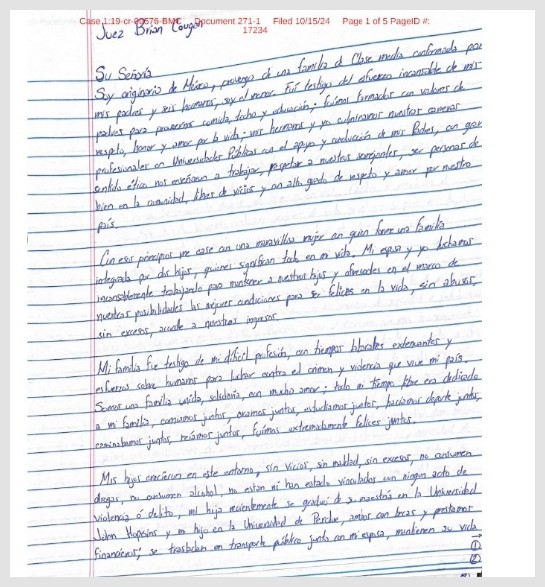 Case 1:19-cr-00576-BMC Document 271-1 Filed 10/15/24 Page 1 of 5 PageID #:
17234
Juez Brian Cougan
Su Señoría
Soy originario de México, provengo de una familia de Clase media conformada por
mis padres y seis hermanos, soy el menor. Fui testigo del esfuerzo incansable de mis
padres para proveernos comida, techo y educación; fuimos formados con valores de
respeto, honor y amor por la vida; mis hermanos y yo culminamos nuestras carreras
profesionales en Universidades Públicas con el apoyo y conducción de mis Padres, con gran
sentido ético nos enseñaron a trabajar, respetar a nuestros semejantes, ser personas de
bien en la comunidad, libres de vicios y un alto grado de respeto y amor por nuestro
país.
Con esos principios me case con una maravillosa mujer con quien forme una familia
integrada por dos hijos, quienes significan todo en mi vida. Mi esposa y yo luchamos
incansablemente trabajando para mantener a nuestros hijos y ofrecerles en el marco de
nuestras posibilidades las mejores condiciones para ser felices en la vida, sin abusos,
sin excesos, acorde a nuestros ingresos.
Mi familia fue testigo de mi difícil profesión, con tiempos laborales extenuantes y
esfuerzos sobre humanos para luchar contra el crimen y violencia que vive mi país.
Somos una familia unida, solidaria, con mucho amor; todo mi tiempo libre era dedicado
a mi familia, comiamos juntos, orabamos juntos, estudiamos juntos, haciamos deporte juntos,
caminabamos juntos, reíamos juntos, fuimos extremadamente felices juntos.
Mis hijos crecieron en este entorno, sin vicios, sin maldad, sin excesos, no consumen
drogas, no consumen alcohol, no estan ni han estado vinculados con ningun acto de
violencia ó delito, mi hija recientemente se graduó de su maestría en la Universidad
John Hopkins y mi hijo en la Universidad de Perdue, ambos con becas y prestamos
financieros; se trasladan en transporte público junto con mi esposa, mantienen su vida
①
②